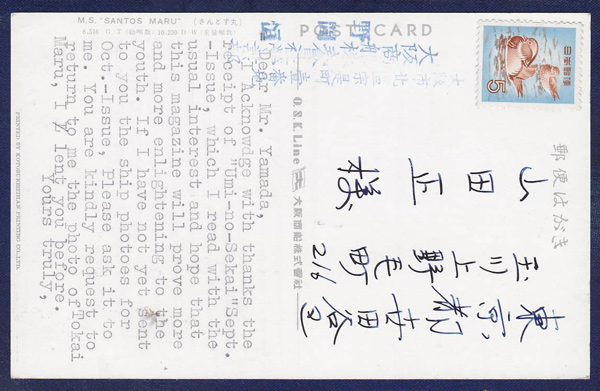 M.S. "SANTOS MARU" (さんとす丸)
POST CARD
日本郵便
5
郵便はがき
東京都世田谷区
玉川上野毛町 216
山田正様
O.S.K. Line 大阪商船株式会社
大阪商船株式会社
野間 恒
Dear Mr. Yamada,
I Acknowdge with thanks the
receipt of "Umi-no-Sekai"Sept.
-Issue, which I read with the
usual interest and hope that
this magazine will prove more
and more enlightening to the
youth. If I have not yet sent
to you the ship photoes for
Oct.-Issue, Please ask it to
me. You are kindly request to
return to me the photo of Tokai
Maru, I lent you before.
Yours truly,
PRINTED BY KOTOBUKISEIHAN PRINTING CO.LTD.